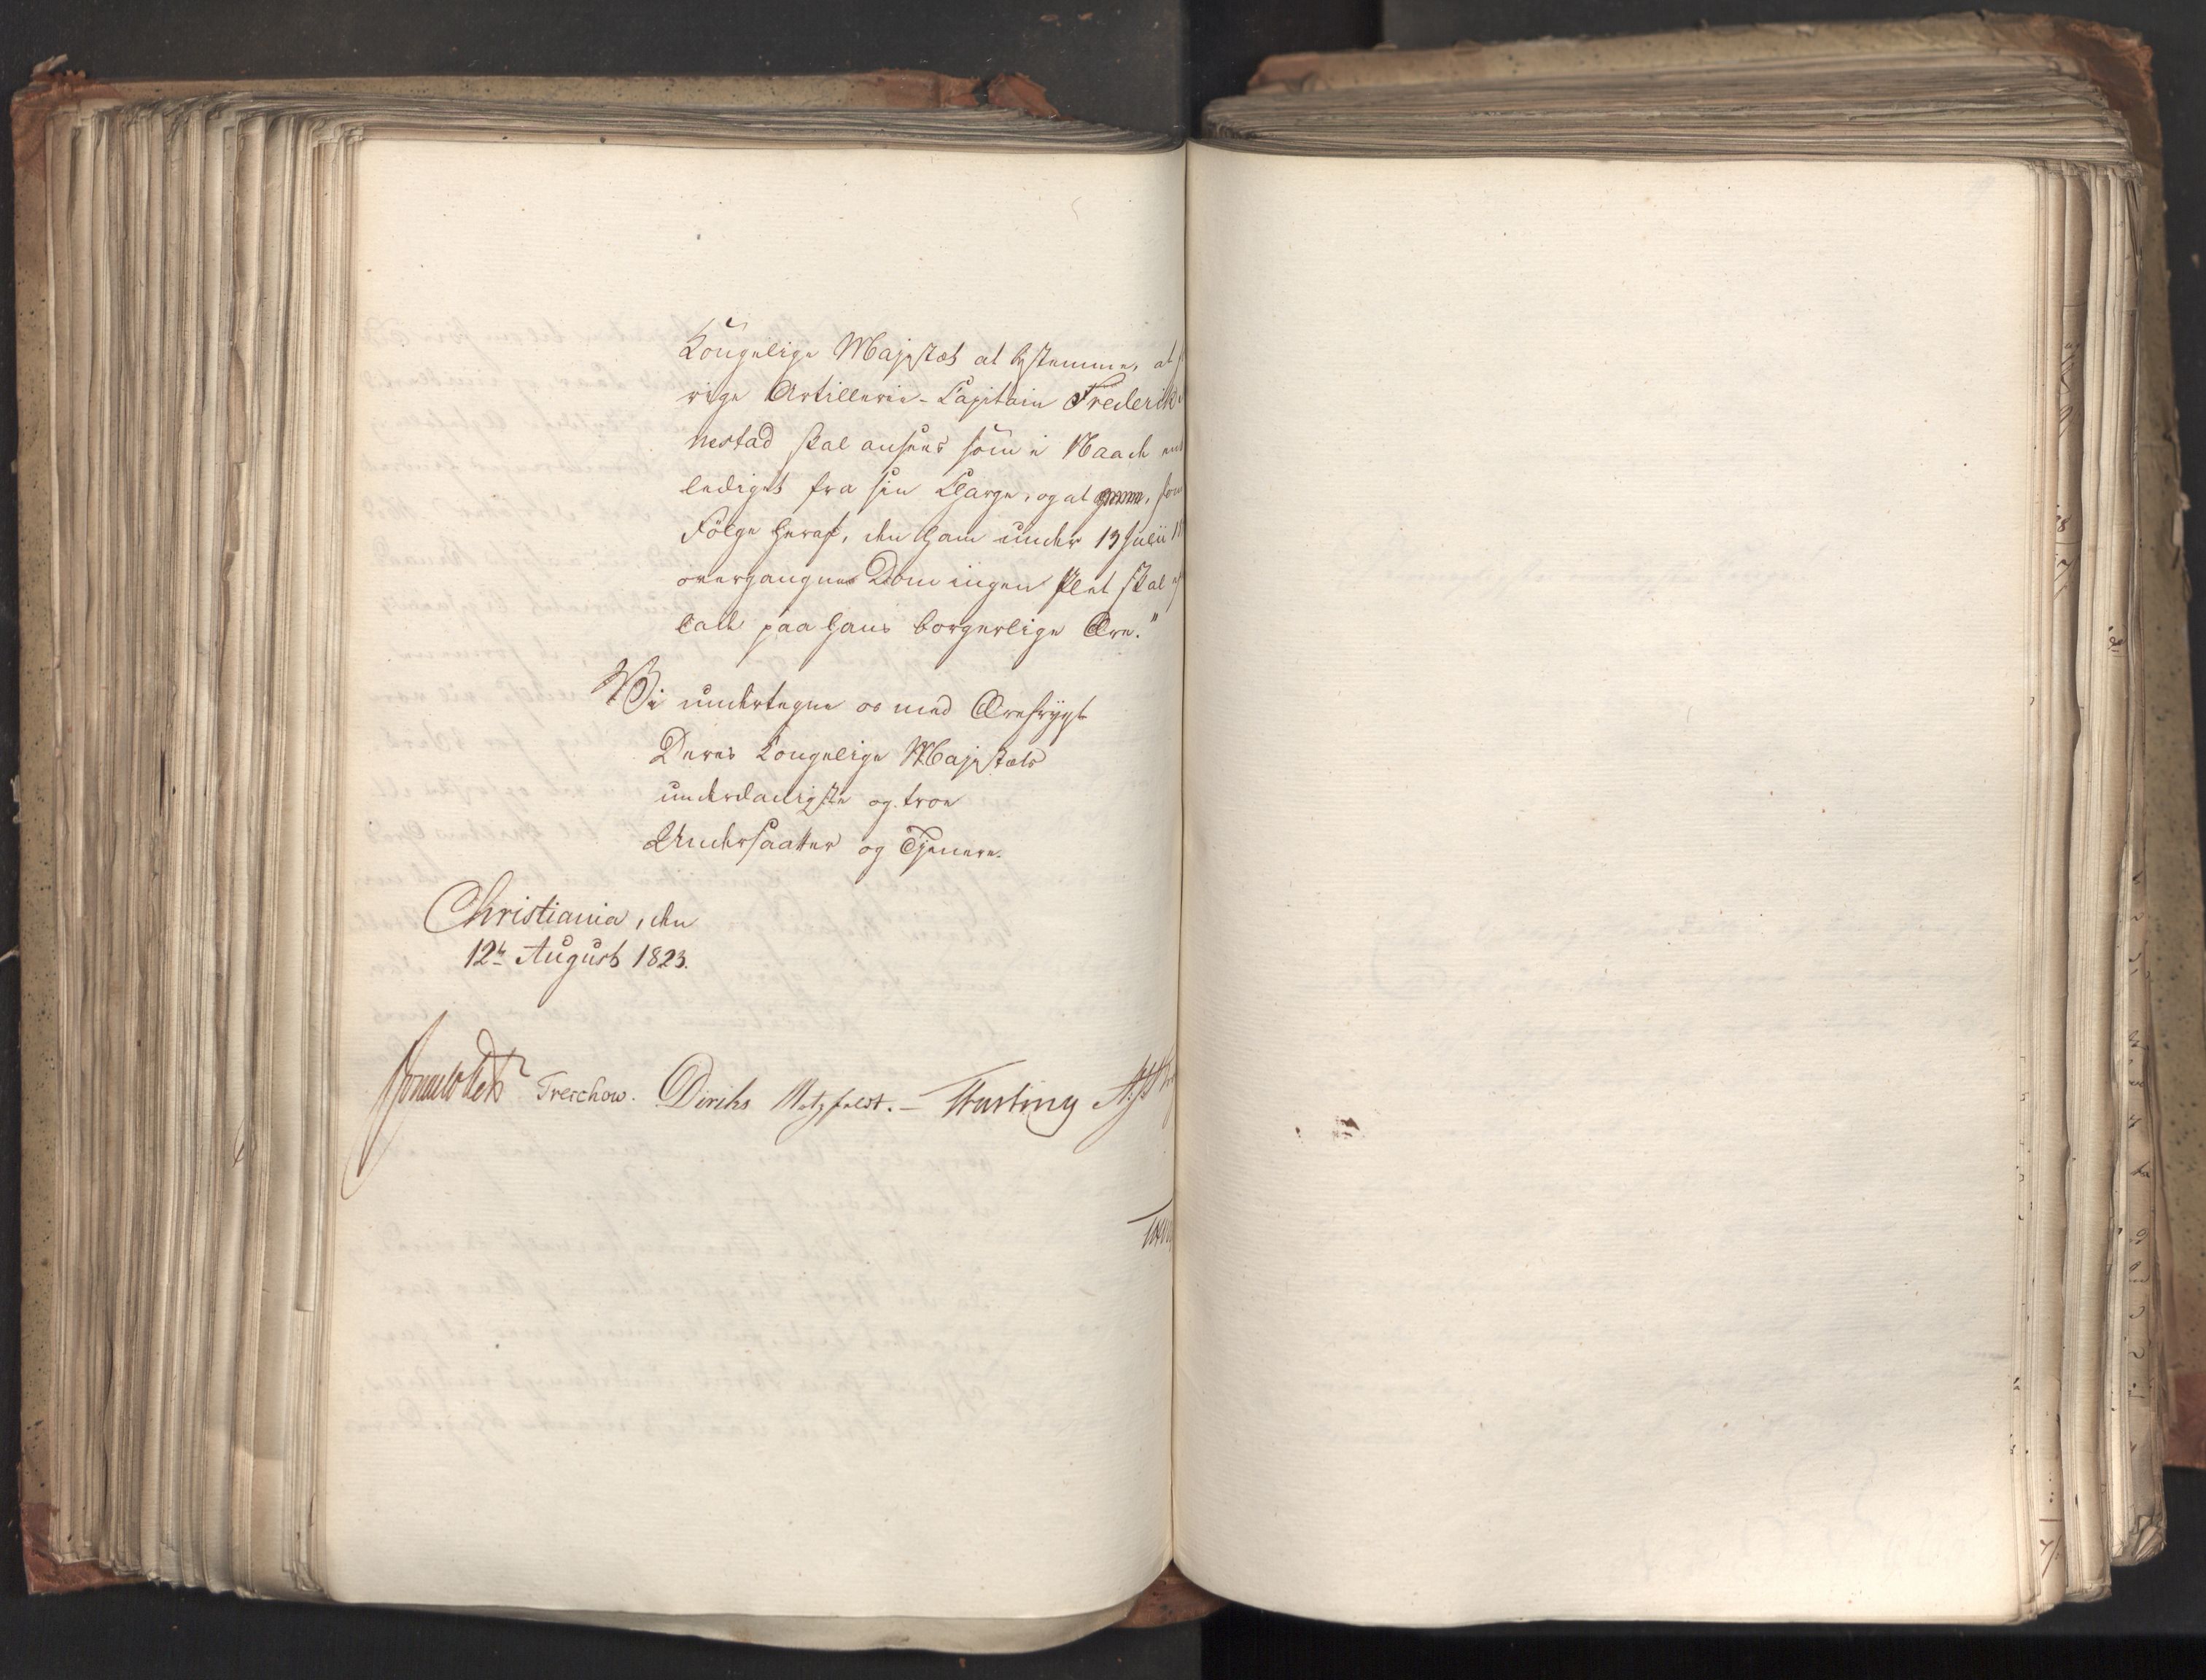 Kongelige Majestæt at bestemme, at
rige Artillerie-Capitain Frederik
nestad skal ansees som i Naade ent
lediget fra sin Charge, og at som
Følge heraf, den ham under 13 Julii 18
overgangne Dom ingen Plet skal
calde paa hans borgerlige Ære."
Vi undertegne os med Ærefrygt
Deres Kongelige Majestæts
underdanigste og troe
Undersaatter og Tjenere.
Christiania, den
12te August 1823.
Sommerhielm Treschow. Diriks Motzfeldt. – Fasting